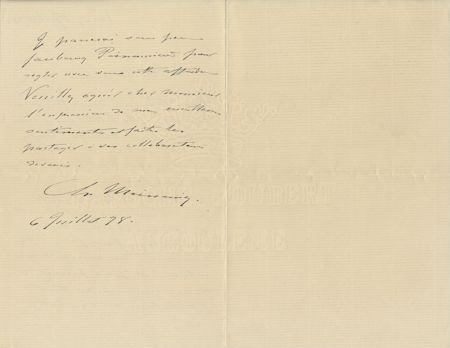 Je passerai sous peu
faubourg Poissonnière pour
régler avec vous cette affaire.
Veuillez agréer cher monsieur
l'expression de mes meilleurs
sentiments et faites les
partager à vos collaborateurs
dévoués.
6 Juillet 98.